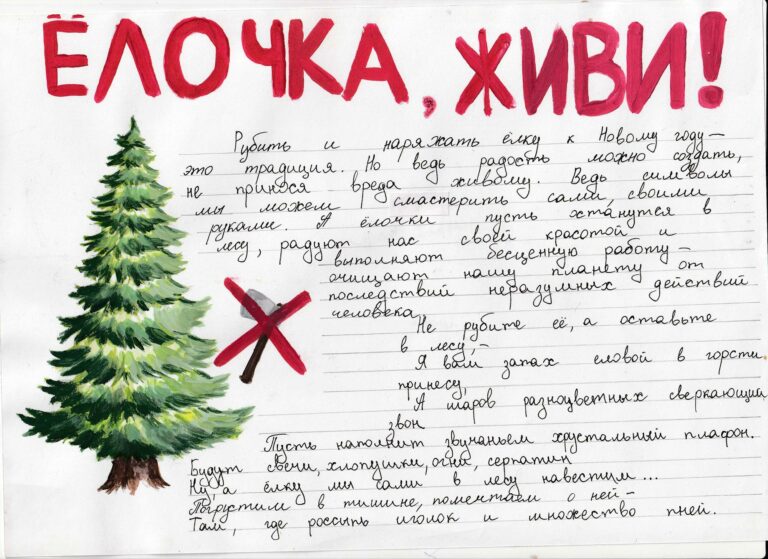 ЁЛОЧКА, ЖИВИ!
Рубить и наряжать ёлку к Новому году –
это традиция. Но ведь радость можно создать,
не принося вреда живому. Ведь символы
мы можем смастерить сами, своими
руками. А ёлочки пусть останутся в
лесу, радуют нас своей красотой и
выполняют бесценную работу –
очищают нашу планету от
последствий неразумных действий
человека.
Не рубите её, а оставьте
в лесу, –
Я вам запах еловой в горсти
принесу,
А шаров разноцветных сверкающий
звон
Пусть наполнит звучаньем хрустальный плафон.
Будут свечи, хлопушки, огни, серпатин
Ну, а ёлку мы сами в лесу навестим...
Погрустим в тишине, помечтаем о ней –
Там, где россыпь иголок и множество пней.